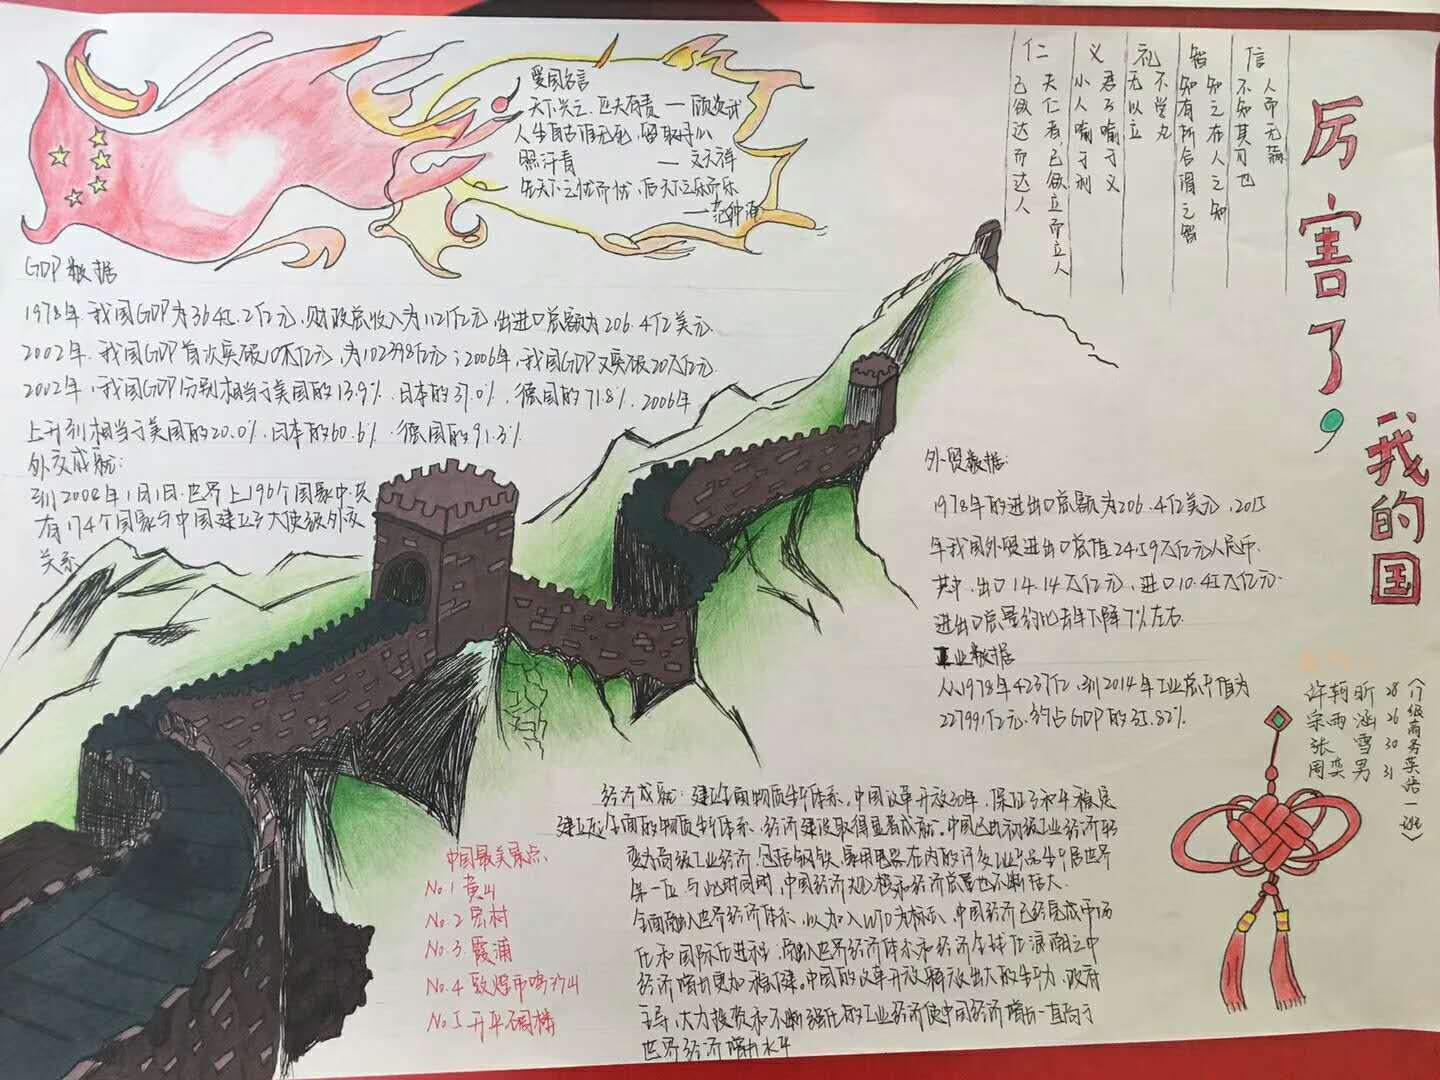 厉害了,
我的国
爱国名言
天下兴亡,匹夫有责 — 顾炎武
人生自古谁无死,留取丹心
照汗青 — 文天祥
先天下之忧而忧,后天下之乐而乐
— 范仲淹
仁
夫仁者,己欲立而立人
己欲达而达人
义
君子喻于义
小人喻于利
礼
不学礼
无以立
智
知之在人之知
知有所合谓之智
信
人而无
不知其可也
GDP数据
1978年,我国GDP为3645.2亿元,财政总收入为1121亿元,出进口总额为206.4亿美元.
2002年,我国GDP首次突破10万亿元,为102398亿元;2006年,我国GDP又突破20万亿元.
2002年,我国GDP分别相当于美国的13.9%,日本的37.0%,德国的71.8%,2006年
上升到相当于美国的20.0%,日本的60.6%,德国的91.3%.
外交成就:
到2008年1月1日,世界上196个国家中,共
有174个国家与中国建立了大使级外交
关系
外贸数据:
1978年的进出口总额为206.4亿美元,2015
年我国外贸进出口总值24.59万亿元人民币.
其中,出口14.14万亿元,进口10.45万亿元.
进出口总量约比去年下降7%左右.
工业数据
从1978年4237亿,到2014年工业总产值为
227991亿元,约占GDP的35.82%.
许轲昕 28
宋雨涵 26
张雪 30
周奕男 31
(17级商务英语一班)
经济成就:建立全面物质生产体系,中国改革开放30年,保证了和平稳定
建立起全面的物质生产体系,经济建设取得显著成就.中国已由初级工业经济转
变为高级工业经济.包括钢铁,家用电器在内的许多工业产品生产居世界
第一位.与此时同时,中国经济规模和经济总量也不断扩大.
全面融入世界经济体系.以加入WTO为标志,中国经济已经完成市场
化和国际化进程;融入世界经济体系和经济全球化浪潮之中
经济增长更加稳健.中国的改革开放释放出大的生产力,政府
主导,大力投资和不断强化的工业经济使中国经济增长一直高于
世界经济增长水平
中国最美景点.
No.1 黄山
No.2 宏村
No.3 霞浦
No.4 敦煌市鸣沙山
No.5 开平碉楼